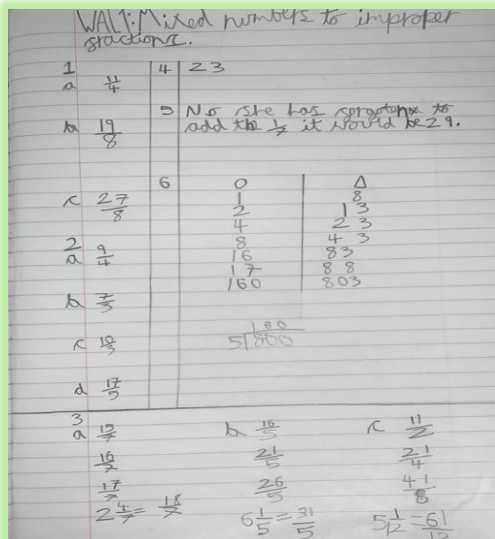 WALT: Mixed numbers to improper
fractions.
1
a 11/4
b 19/8
c 27/8
2
a 9/4
b 7/3
c 10/3
d 17/5
4 23
5 No she has forgoten to
add the 1/7 it would be 29.
6
0 Δ
1 8
2 13
4 23
8 43
16 83
17 88
160 803
160
5 800
3
a 15/7 b 16/5 c 11/2
16/7 21/5 21/4
17/7 26/5 41/8
2 4/7 = 18/7 6 1/5 = 31/5 5 1/12 = 61/12